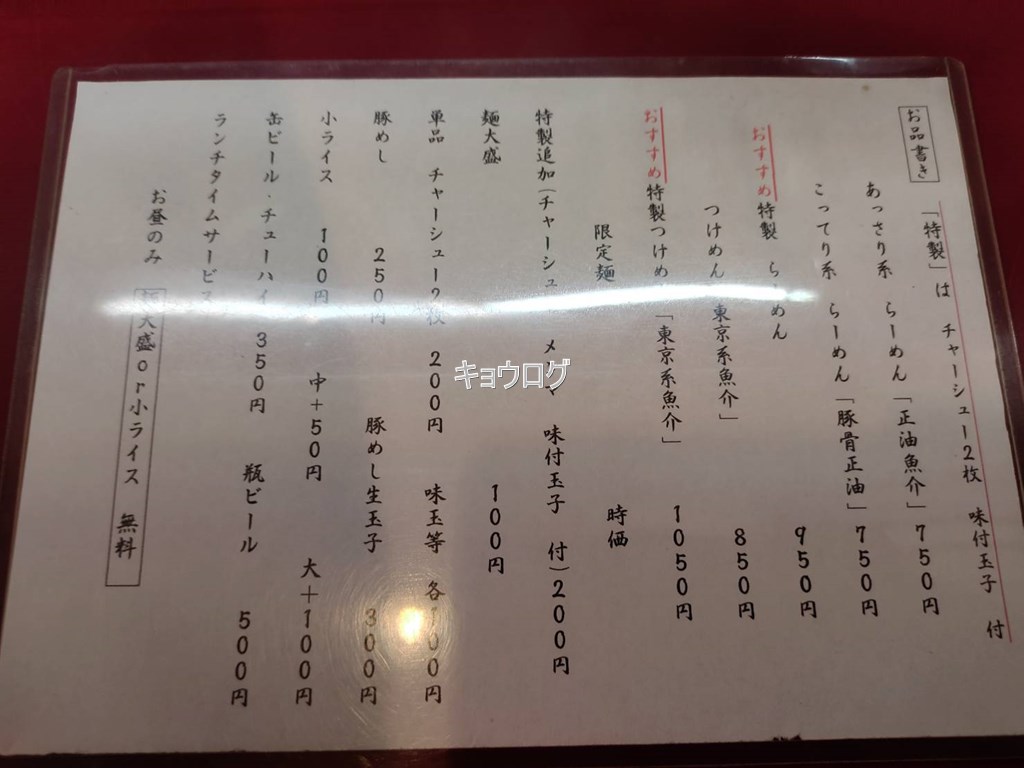 お品書き
「特製」は チャーシュー2枚 味付玉子 付
あっさり系 らーめん「正油魚介」 750円
こってり系 らーめん「豚骨正油」 750円
おすすめ 特製 らーめん 950円
つけめん「東京系魚介」 850円
おすすめ 特製つけめん「東京系魚介」 1050円
限定麺 時価
特製追加(チャーシュー メンマ 味付玉子 付)200円
麺大盛 100円
単品 チャーシュー2枚 200円 味玉等 各100円
豚めし 250円 豚めし生玉子 300円
小ライス 100円 中+50円 大+100円
缶ビール・チューハイ 350円 瓶ビール 500円
ランチタイムサービス
お昼のみ 麺大盛or小ライス 無料
キョウログ